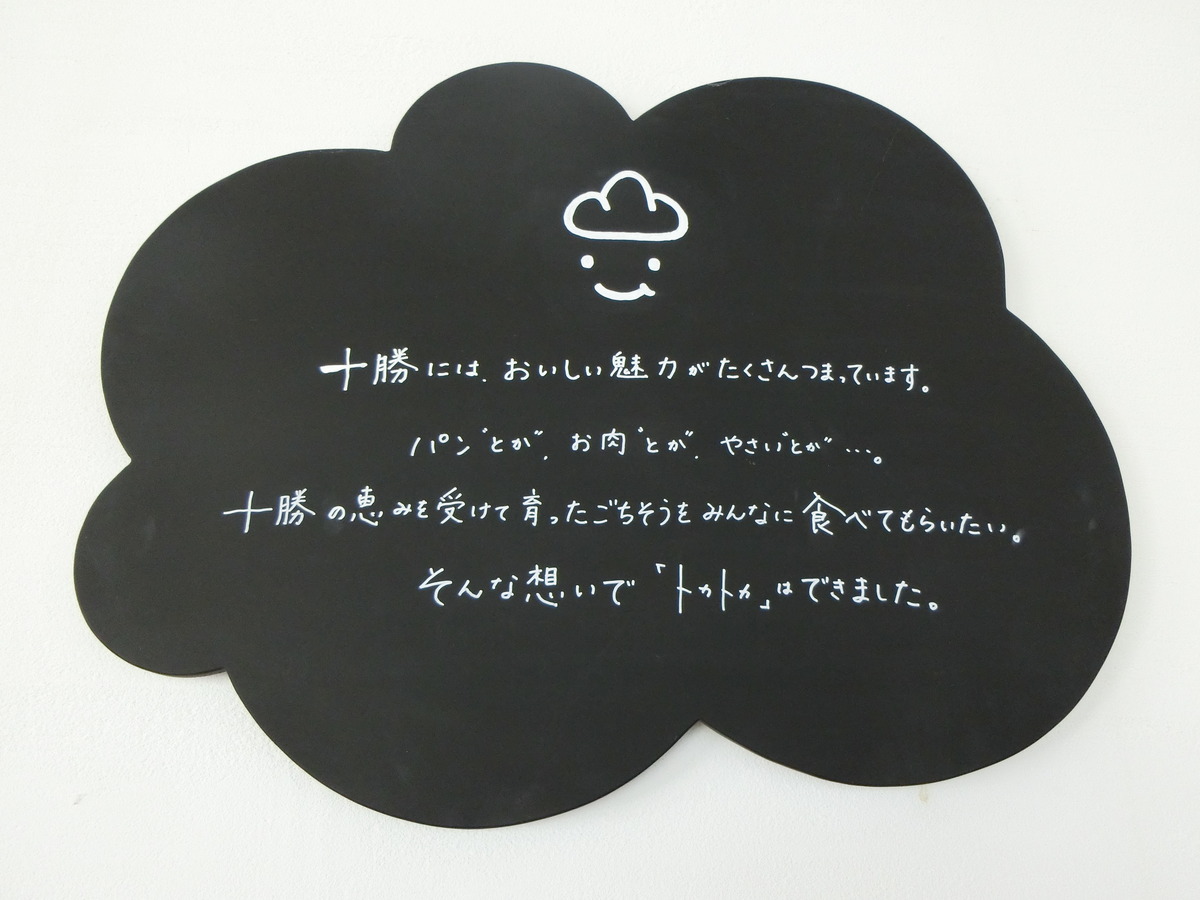 十勝には、おいしい魅力がたくさんつまっています。
パン゛とか゛、お肉゛とか゛、やさい゛とか゛…。
十勝の恵みを受けて育ったごちそうをみんなに食べてもらいたい。
そんな想いで「トカトカ」はできました。